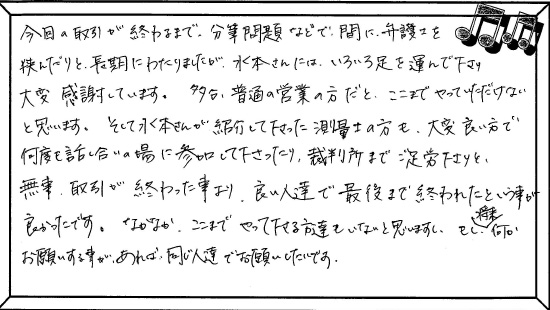 今回の取引が終わるまで、分筆問題などで、間に、弁護士を
挟んだりと、長期にわたりましたが、水本さんには、いろいろ足を運んで下さり
大変感謝しています。 多分、普通の営業の方だと、ここまでやっていただけない
と思います。 そして水本さんが紹介して下さった測量士の方も、大変良い方で
何度も話し合いの場に参加して下さったり、裁判所までご足労下さりと、
無事、取引が終わった事より、良い人達で最後まで終われたという事が
良かったです。 なかなか、ここまでやって下さる方達もいないと思いますし、もし、将来何か
お願いする事が、あれば、同じ人達でお願いしたいです。